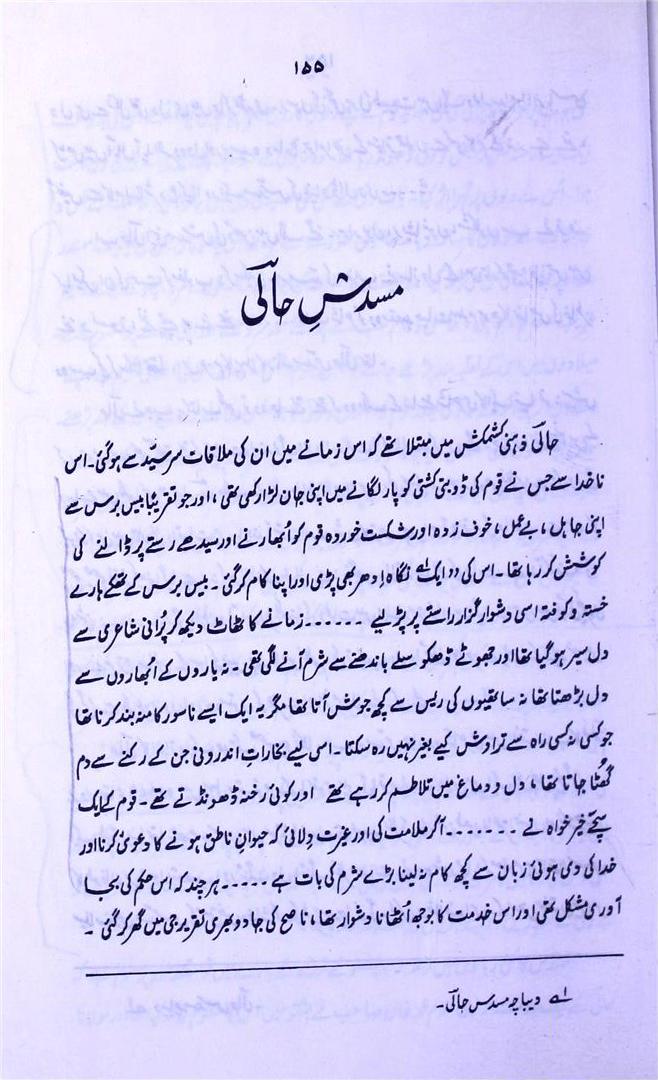 ۱۵۵
مسدسِ حالؔی
حالؔی ذہنی کشمکش میں مبتلا تھے کہ اس زمانے میں ان کی ملاقات سرسیّد سے ہوگئی۔ اس
ناخدا سے جس نے قوم کی ڈوبتی کشتی کو پار لگانے میں اپنی جان لڑا رکھی تھی، اور جو تقریباً بیس برس سے
اپنی جاہل، بے عمل، خوف زدہ اور شکست خوردہ قوم کو اُبھارنے اور سیدھے رستے پر ڈالنے کی
کوشش کر رہا تھا۔ اس کی ‟ایک لے نگاہ اِدھر بھی پڑی اور اپنا کام کرگئی۔ بیس برس کے تھکے ہارے
خستہ و کوفتہ اسی دشوار گزار راستے پر پڑ لیے ۔۔۔۔۔۔ زمانے کا ٹھاٹ دیکھ کر پُرانی شاعری سے
دل سیر ہوگیا تھا اور جھوٹے ڈھکوسلے باندھنے سے شرم آنے لگی تھی۔ نہ یاروں کے اُبھاروں سے
دل بڑھتا تھا نہ ساتھیوں کی ریس سے کچھ جوش آتا تھا مگر یہ ایک ایسے ناسور کا منہ بند کرنا تھا
جو کسی نہ کسی راہ سے تراوش کیے بغیر نہیں رہ سکتا۔ اسی لیے بخاراتِ اندرونی جن کے رکنے سے دم
گھُٹا جاتا تھا، دل و دماغ میں تلاطم کر رہے تھے اور کوئی رخنہ ڈھونڈتے تھے۔ قوم کے ایک
سچّے خیر خواہ نے ۔۔۔۔۔۔۔ آکر ملامت کی اور غیرت دِلائی کہ حیوانِ ناطق ہونے کا دعویٰ کرنا اور
خدا کی دی ہوئی زبان سے کچھ کام نہ لینا بڑے شرم کی بات ہے ۔۔۔۔۔ ہر چند کہ اس حکم کی بجا
آوری مشکل تھی اور اس خدمت کا بوجھ اُٹھانا دشوار تھا، ناصح کی جادو بھری تقریر جی میں گھر کر گئی۔
لے دیباچہ مسدس حالؔی۔